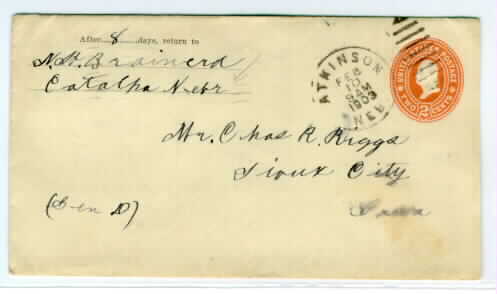 After 8 days, return to
N. H. Brainerd
Catalpa Nebr
ATKINSON
FEB
10
9AM
1903
NEB
UNITED STATES POSTAGE
TWO CENTS
2
Mr. Chas R. Riggs
Sioux City
Iowa
(Gen D)